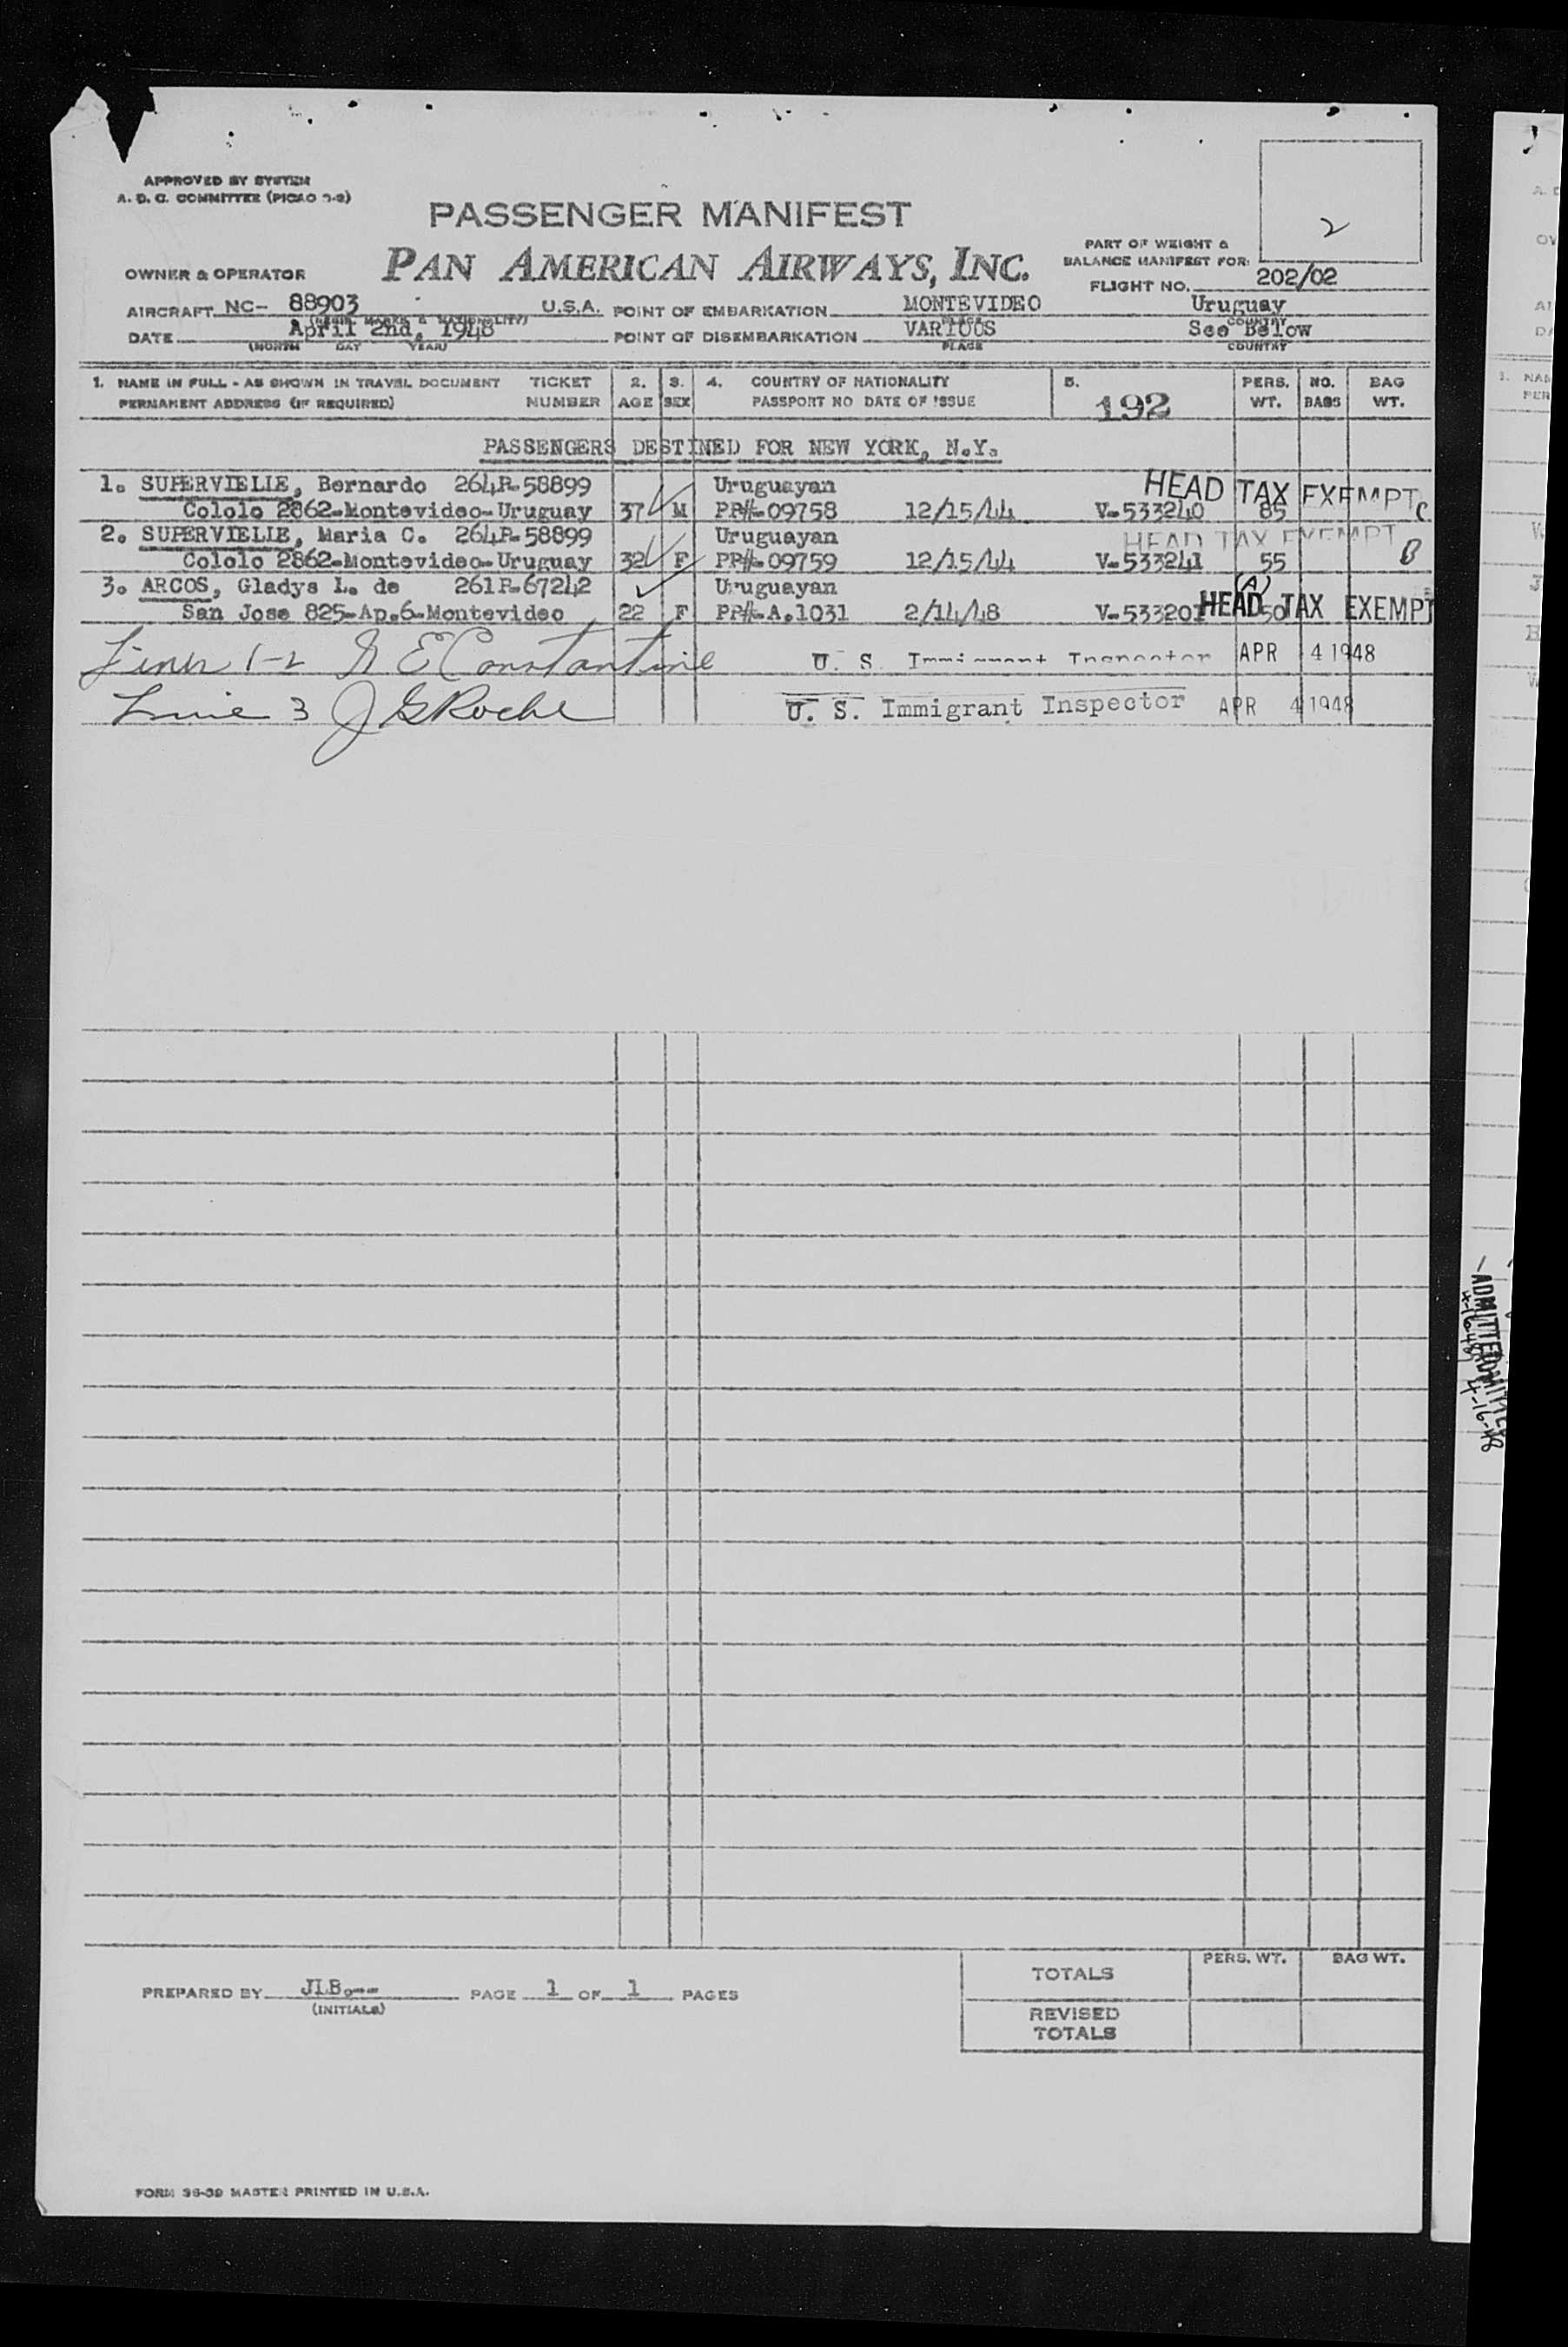 APPROVED BY SYSTEM
A. D. C. COMMITTEE (PICAO 7-2)
PASSENGER MANIFEST
2
OWNER & OPERATOR
PAN AMERICAN AIRWAYS, INC.
PART OF WEIGHT &
BALANCE MANIFEST FOR:
FLIGHT NO. 202/02
AIRCRAFT NC- 88903 U.S.A. POINT OF EMBARKATION MONTEVIDEO Uruguay
(REGIS. MARKS & NATIONALITY) PLACE COUNTRY
DATE April 2nd, 1948 POINT OF DISEMBARKATION VARIOUS See Below
(MONTH DAY YEAR) PLACE COUNTRY
1. NAME IN FULL - AS SHOWN IN TRAVEL DOCUMENT TICKET 2. 3. 4. COUNTRY OF NATIONALITY 5. PERS. NO. BAG
PERMANENT ADDRESS (IF REQUIRED) NUMBER AGE SEX PASSPORT NO DATE OF ISSUE 192 WT. BAGS WT.
PASSENGERS DESTINED FOR NEW YORK, N.Y.
1. SUPERVIELLE, Bernardo 264R-58899 Uruguayan HEAD TAX EXEMPT
Cololo 2862-Montevideo-Uruguay 37 M PP#-09758 12/15/44 V-533240 85 C
2. SUPERVIELLE, Maria C. 264R-58899 Uruguayan HEAD TAX EXEMPT
Cololo 2862-Montevideo-Uruguay 32 F PP#-09759 12/15/44 V-533241 55 B
3. ARCOS, Gladys L. de 261R-67242 Uruguayan (A)
San Jose 825-Ap.6-Montevideo 22 F PP#-A.1031 2/14/48 V-533201 50 HEAD TAX EXEMPT
Lines 1-2 E Constantine U. S. Immigrant Inspector APR 4 1948
Line 3 J G Roche U. S. Immigrant Inspector APR 4 1948
PREPARED BY JLB.-- PAGE 1 OF 1 PAGES
(INITIALS)
TOTALS PERS. WT. BAG WT.
REVISED
TOTALS
FORM 36-39 MASTER PRINTED IN U.S.A.
ADMITTED
4-16-48